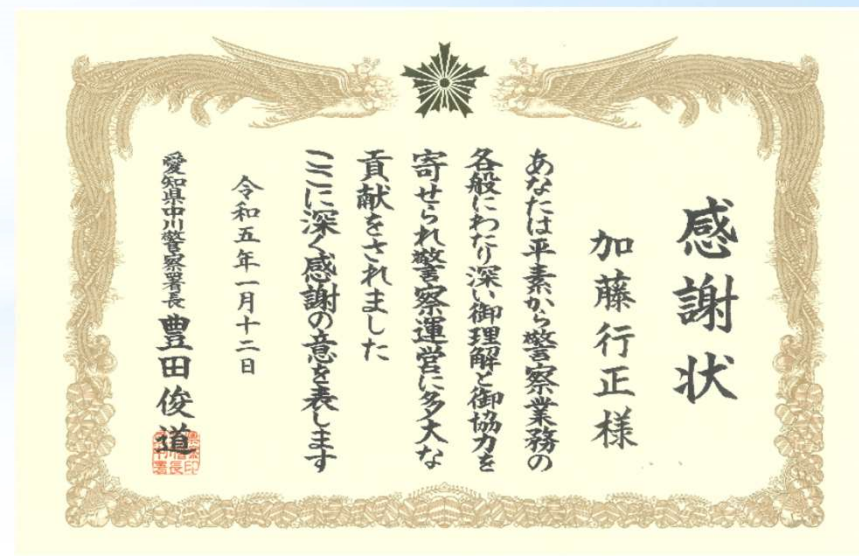 感謝状
加藤行正様
あなたは平素から警察業務の
各般にわたり深い御理解と御協力を
寄せられ警察運営に多大な
貢献をされました
ここに深く感謝の意を表します
令和五年一月十二日
愛知県中川警察署長 豊田俊道